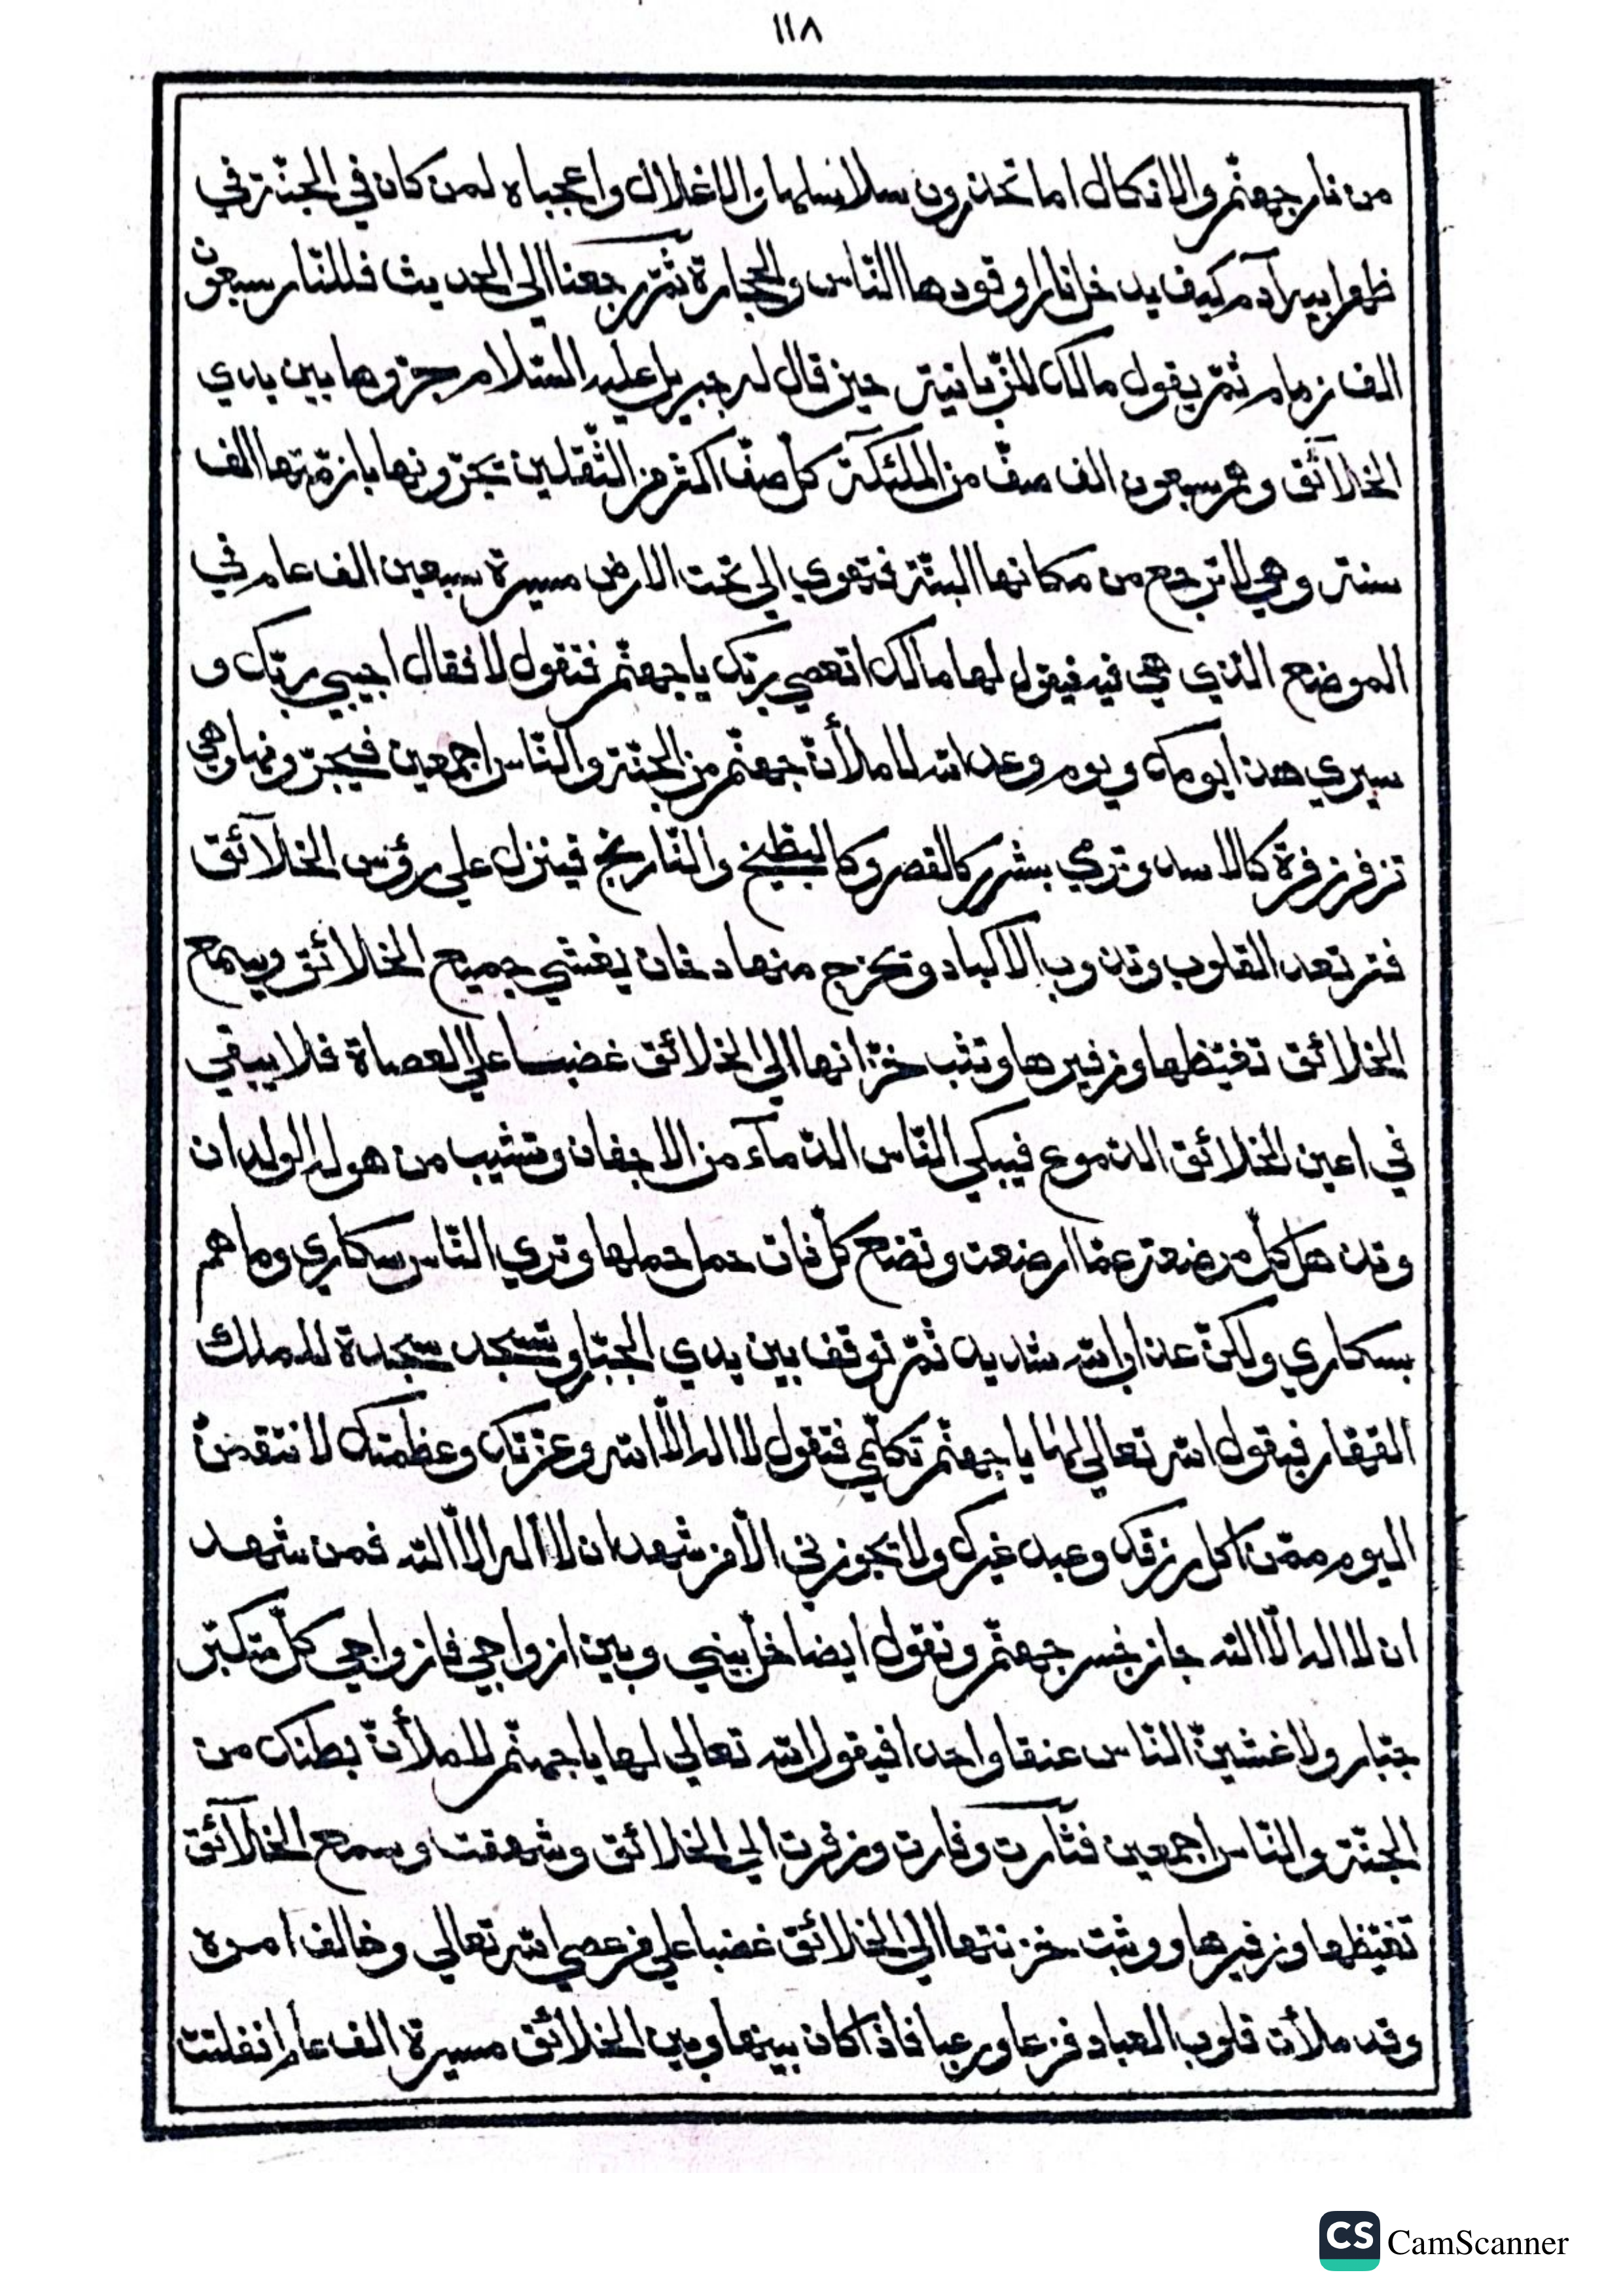 ١١٨
من نار جهنّم والانكال اما تحذرون سلاسلها والاغلال واعجباه لمن كان في الجنّة في
ظهر ابيه آدم كيف يدخل نارا وقودها النّاس والحجارة ثمّ رجعنا الي الحديث فللنّار سبعون
الف زمام ثمّ يقول مالك للزّبانية حين قال له جبريل عليه السّلام جرّوها بين يدي
الخلآئق وهم سبعون الف صفّ من الملئكة كل صفّ اكثر من الثّقلين تجرّونها بازمّتها الف
سنة وهي لا ترجع من مكانها البتّة فتهوي الي تحت الارض مسيرة سبعين الف عام في
الموضع الذي هي فيه فيقول لها مالك اتعصي ربّك يا جهنّم فتقول لا فقال اجيبي ربّك و
سيري هذا يومك ويوم وعد الله لاملأنّ جهنّم من الجنّة والنّاس اجمعين فيجرّونها وهي
تزفر زفرة كالاسد وترمي بشرر كالقصر وكالبطّيخ والنّاريخ فينزل علي رؤس الخلآئق
فترتعد القلوب وتذوب الاكباد وتخرج منها دخان يغشي جميع الخلائق ويسمع
الخلائق تغيّظها وزفيرها وتثب خزّانها الي الخلائق غضبا علي العصاة فلا يبقي
في اعين الخلائق الدّموع فيبكي النّاس الدّمآء من الاجفان وتشيب من هوله الولدان
وتذهل كلّ مرضعة عمّا ارضعت وتضع كلّ ذات حمل حملها وتري النّاس سكاري وما هم
بسكاري ولكنّ عذاب الله شديد ثمّ توقف بين يدي الجبّار وتسجد سجدة للملك
القهّار فيقول الله تعالي لها يا جهنّم تكلّمي فتقول لا اله الّا الله وعزّتك وعظمتك لانتقمنّ
اليوم ممّن اكل رزقك وعبد غيرك ولا تجوزني الّا من شهد ان لا اله الّا الله فمن شهد
ان لا اله الّا الله جاز بجسر جهنّم وتقول ايضا خلّ بيني وبين ازواجي فازواجي كلّ متكبّر
جبّار ولاغشينّ النّاس عنقا واحدا فيقول الله تعالي لها يا جهنّم لاملأنّ بطنك من
الجنّة والنّاس اجمعين فثارت وفارت وزفرت الي الخلائق وشهقت وسمع الخلآئق
تغيّظها وزفيرها ووثبت خزنتها الي الخلائق غضبا علي من عصي الله تعالي وخالف امره
وقد ملأت قلوب العباد فزعا ورعبا فاذا كان بينها وبين الخلائق مسيرة الف عام انفلتت
CS CamScanner